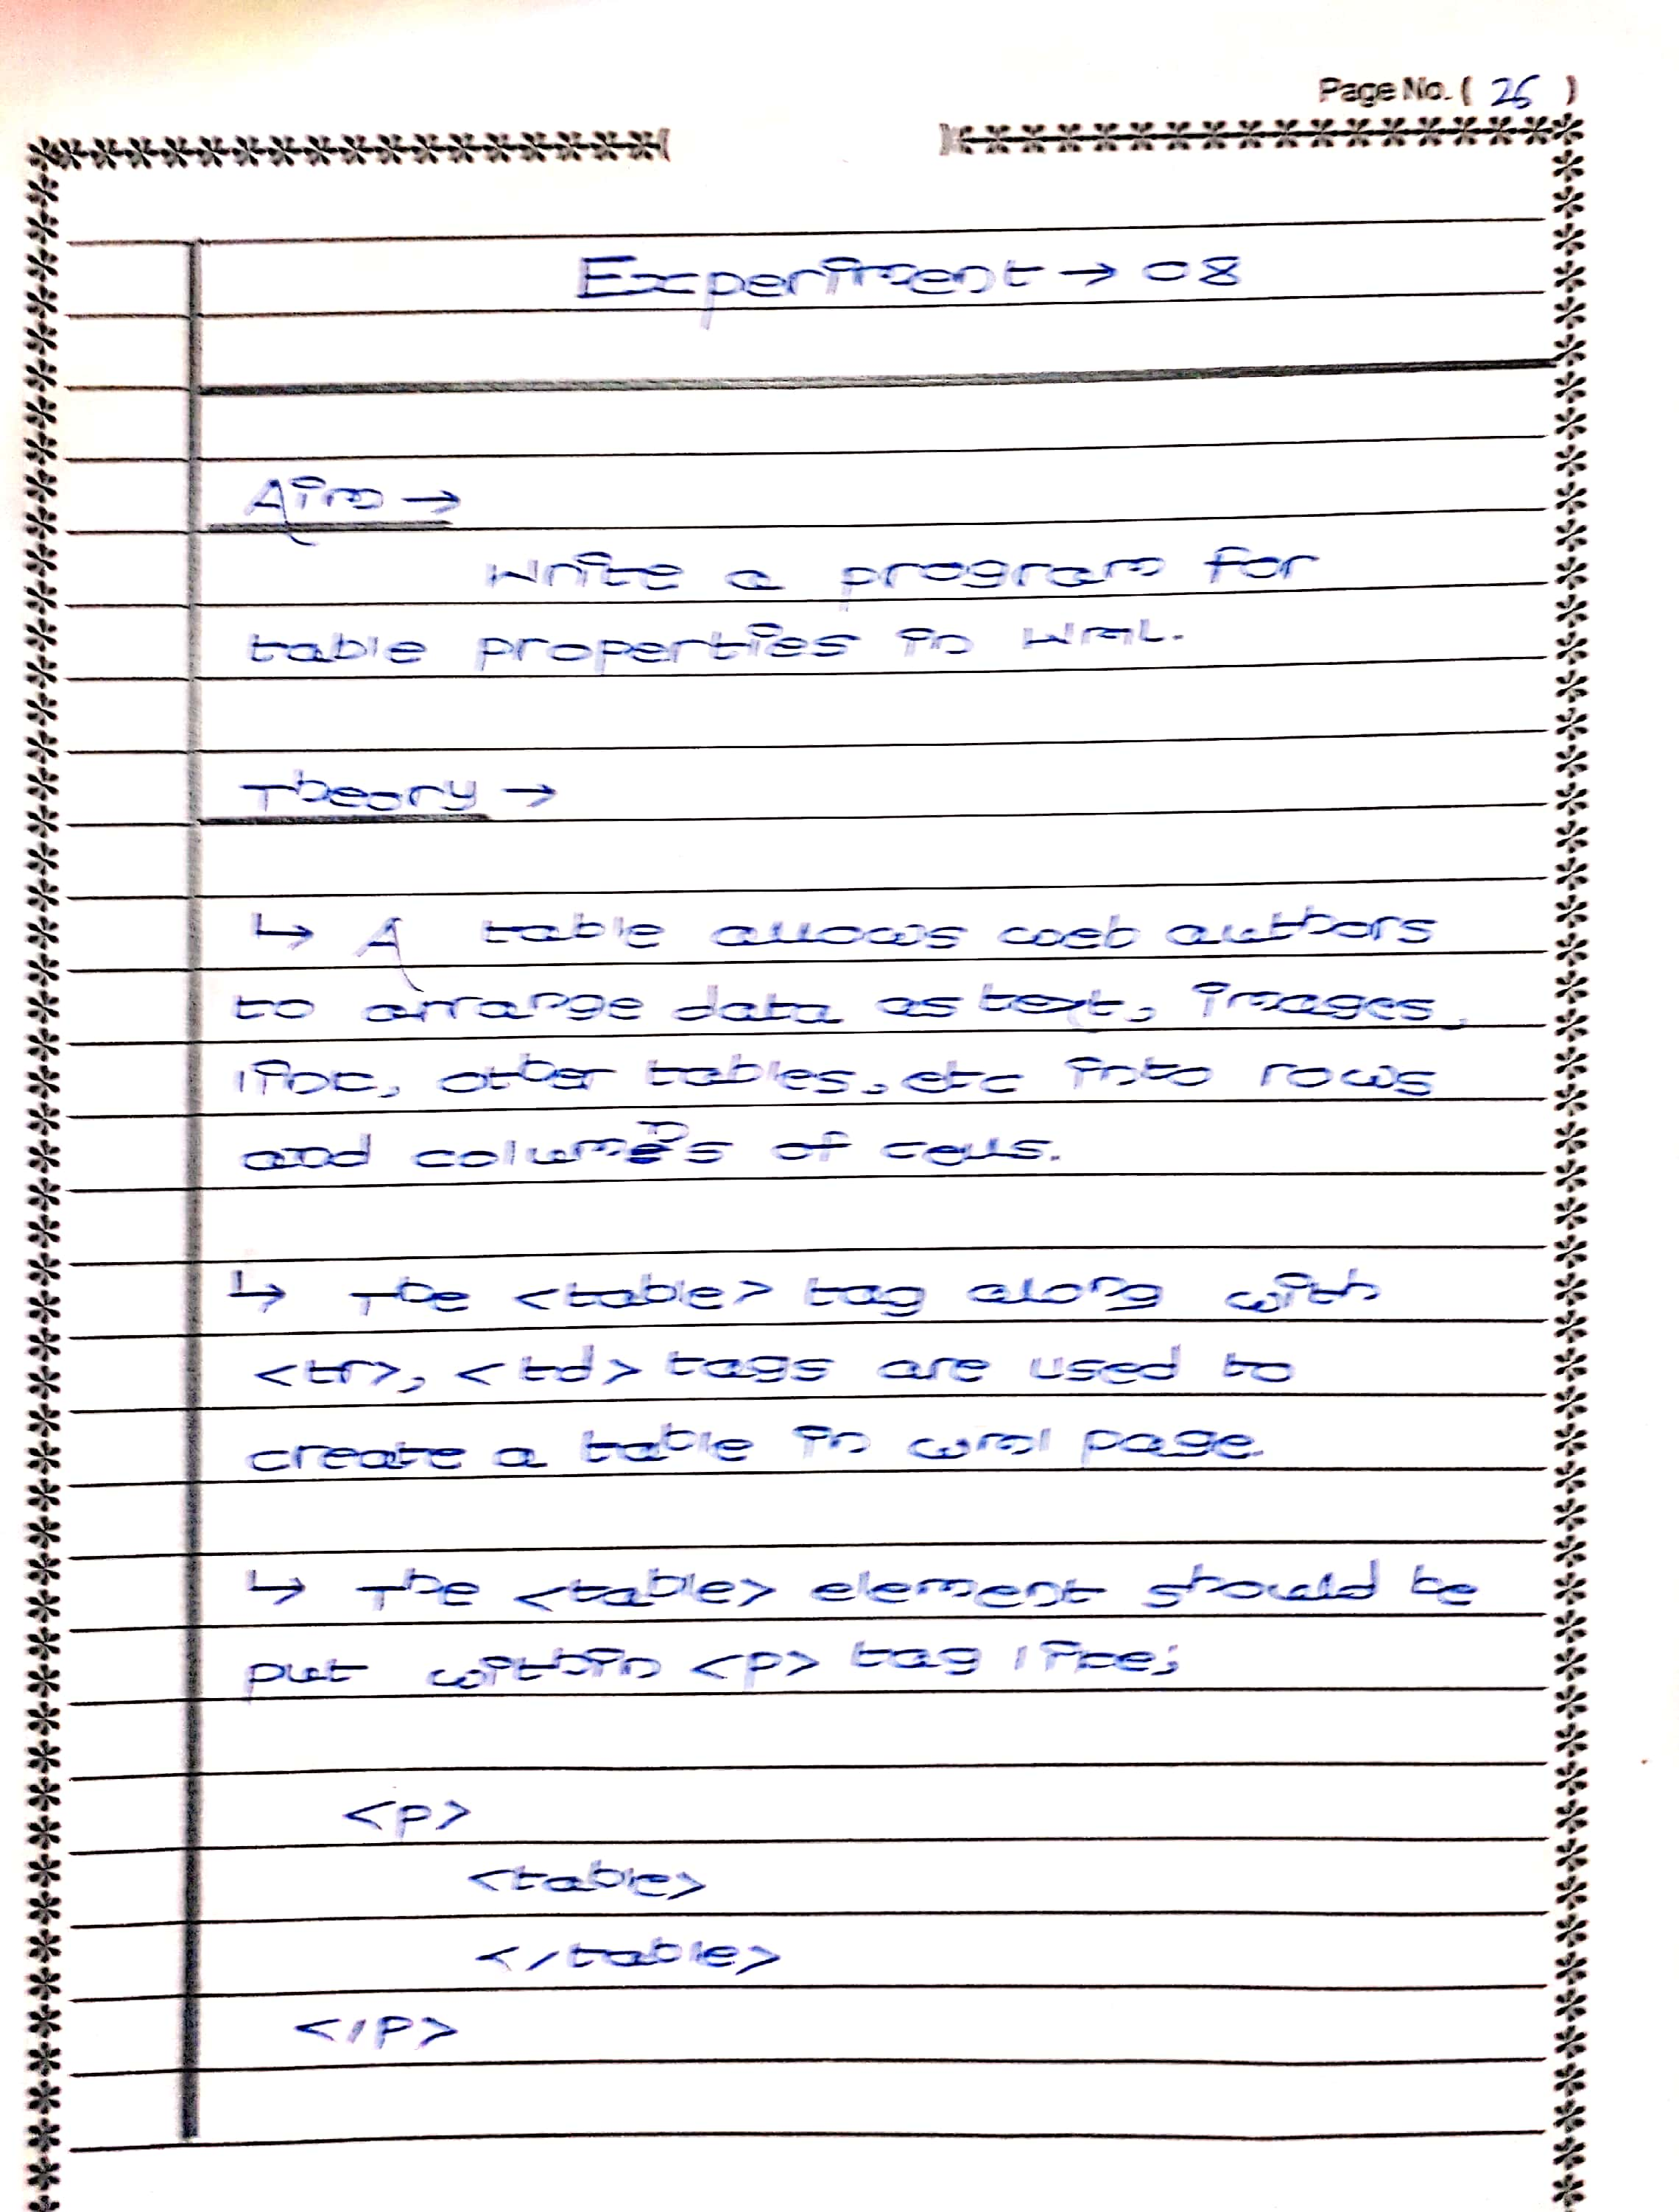 Page No. ( 26 )
Experiment → 08
Aim →
Write a program for
table properties in WML.
Theory →
↳ A table allows web authors
to arrange data as text, images,
link, other tables, etc into rows
and columns of cells.
↳ The <table> tag along with
<tr>, <td> tags are used to
create a table in wml page.
↳ The <table> element should be
put within <p> tag like;
<p>
<table>
</table>
</p>